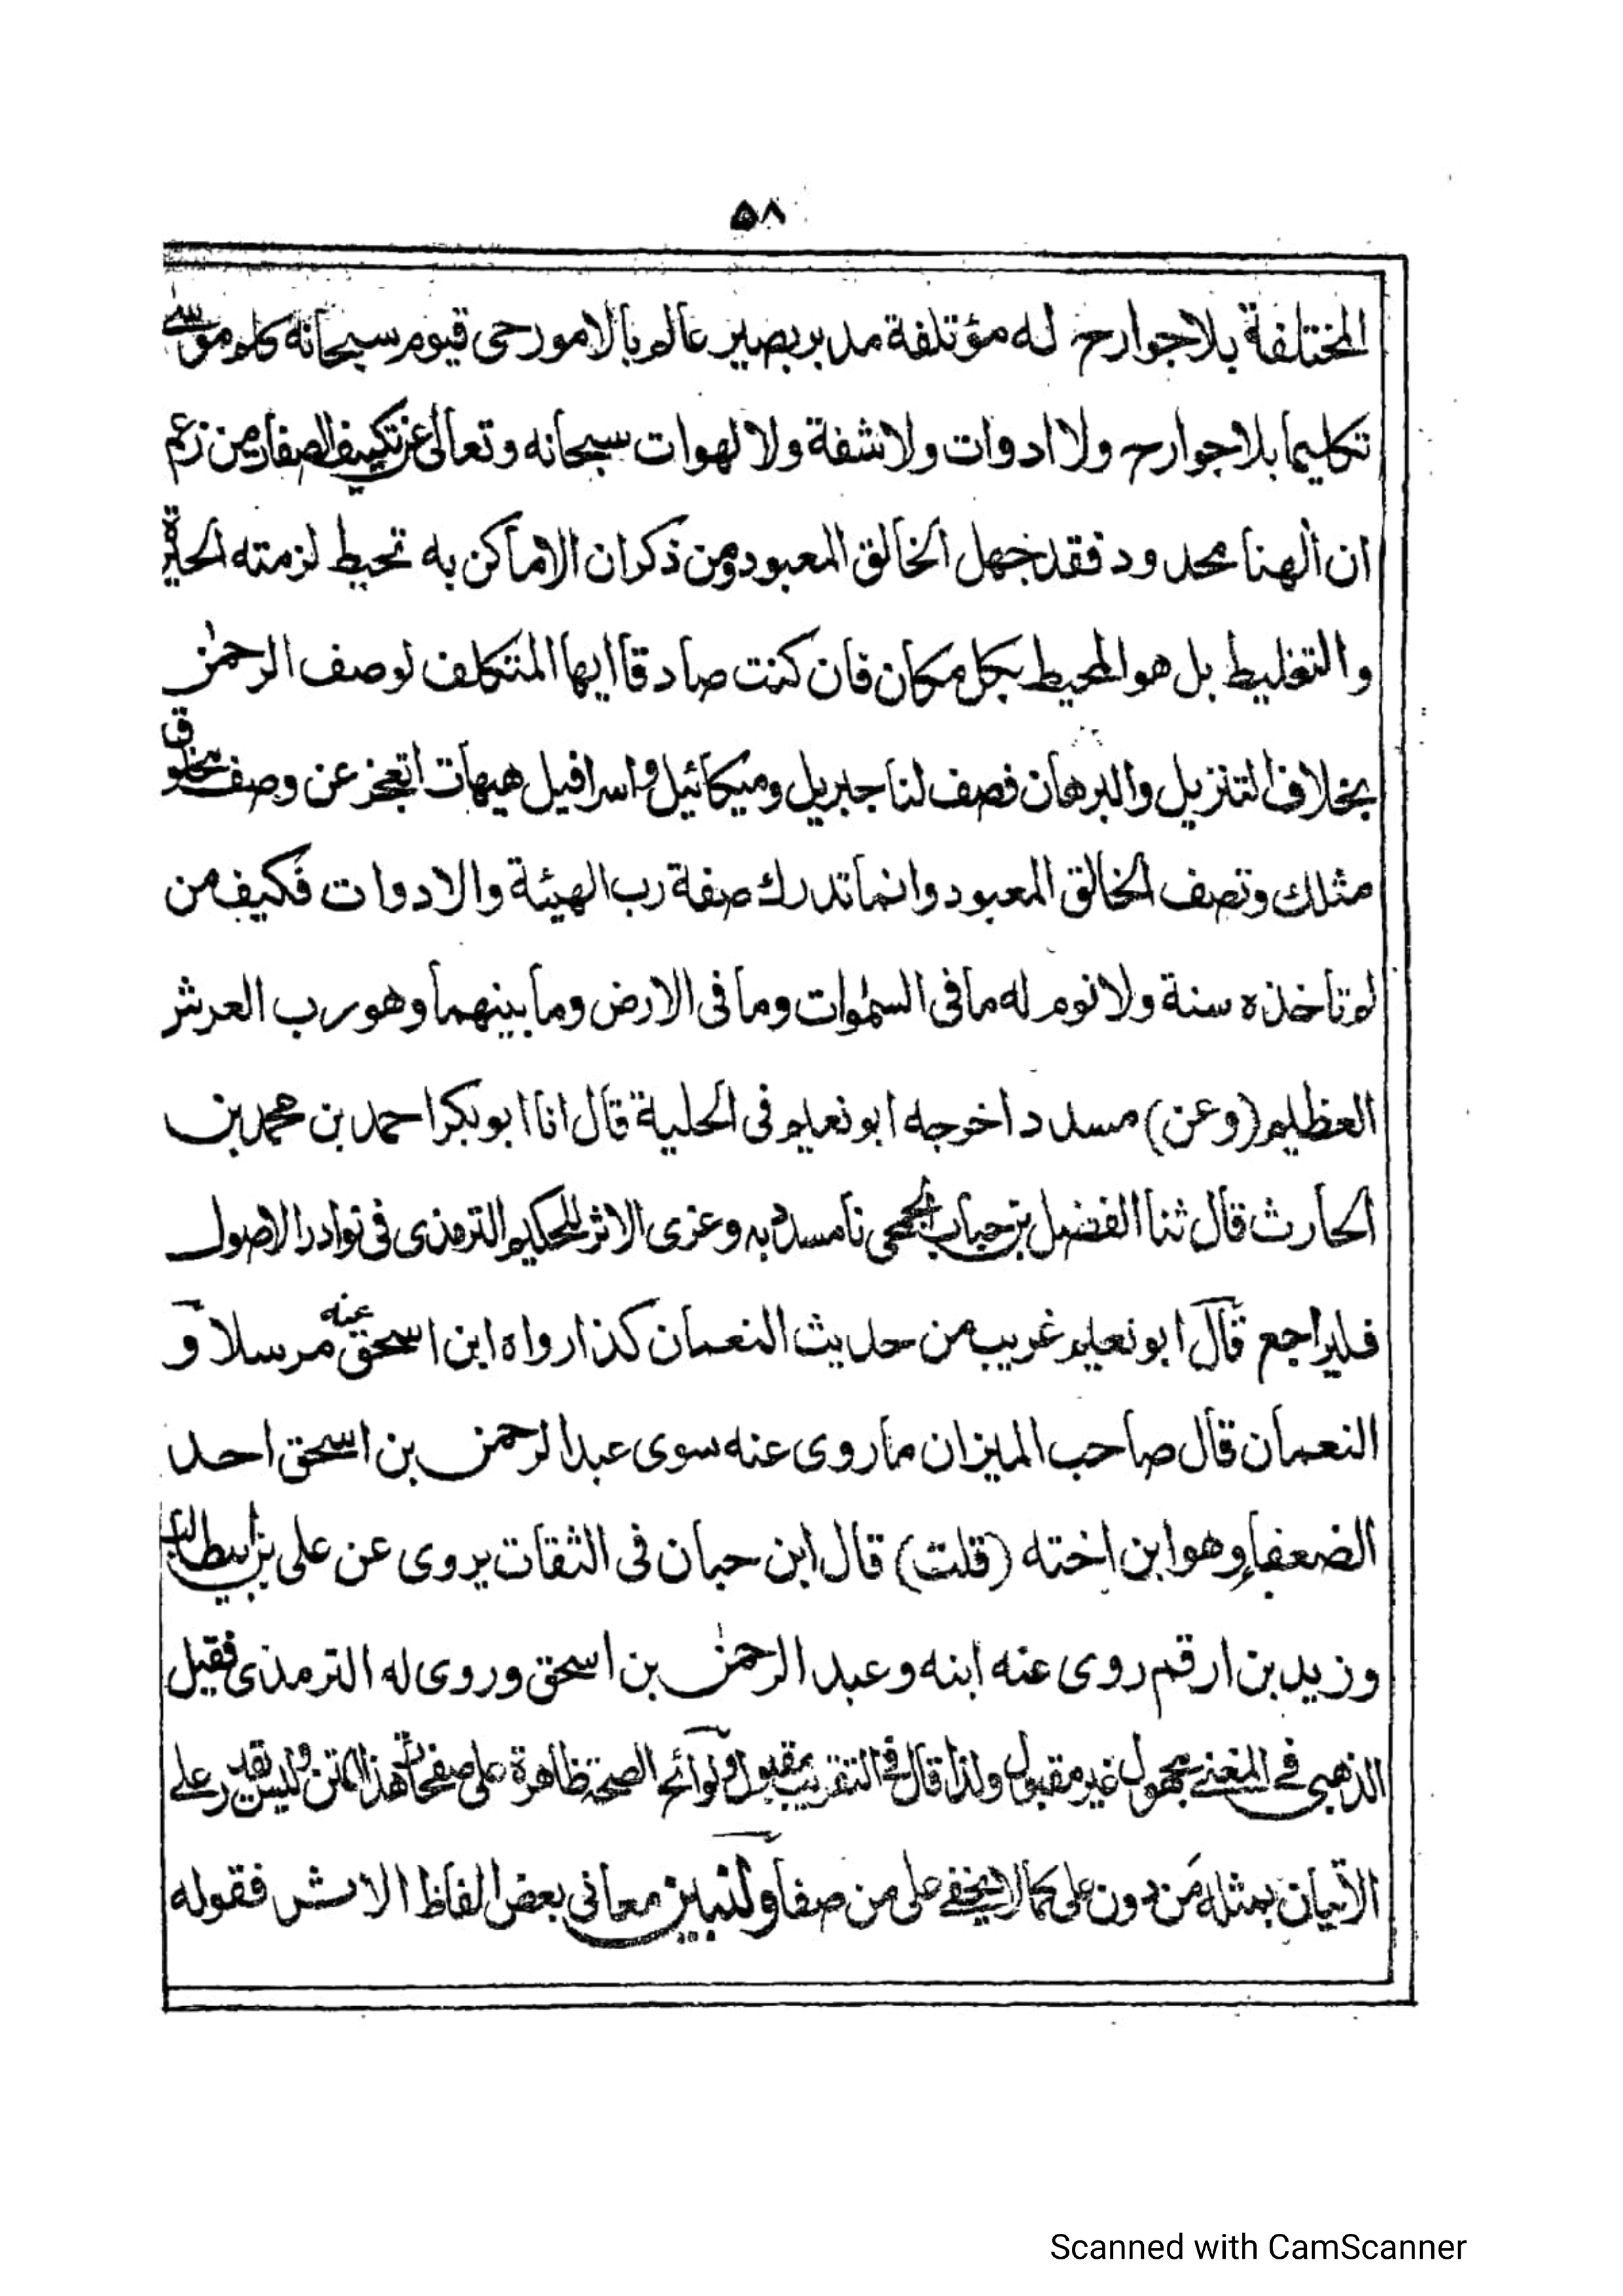 ٥٨
المختلفة بلاجوارح له مؤتلفة مدبر بصير عالم بالامور حى قيوم سبحانه كلم موسى
تكليما بلاجوارح ولا ادوات ولاشفة ولا لهوات سبحانه وتعالى عن تكييف الصفات من زعم
ان الهنا محدود فقد جهل الخالق المعبود ومن ذكر ان الاماكن به تحيط لزمته الحيرة
والتغليط بل هو المحيط بكل مكان فان كنت صادقا ايها المتكلف لوصف الرحمٰن
بخلاف التنزيل والبرهان فصف لنا جبريل وميكائيل واسرافيل هيهات اتعجز عن وصف مخلوق
مثلك وتصف الخالق المعبود وانما تدرك صفة رب الهيئة والادوات فكيف من
لم تاخذه سنة ولا نوم له ما فى السمٰوات وما فى الارض وما بينهما وهو رب العرش
العظيم (وعن) مسدد اخرجه ابو نعيم فى الحلية قال انا ابو بكر احمد بن محمد بن
الحارث قال ثنا الفضل بن حباب الجمحى نا مسدد به وعزى الاثر للحكيم الترمذى فى نوادر الاصول
فليراجع قال ابو نعيم غريب من حديث النعمان كذا رواه ابن اسحق عنه مرسلا و
النعمان قال صاحب الميزان ما روى عنه سوى عبد الرحمن بن اسحق احد
الضعفاء وهو ابن اخته (قلت) قال ابن حبان فى الثقات يروى عن على بن ابيطالب
وزيد بن ارقم روى عنه ابنه وعبد الرحمٰن بن اسحق وروى له الترمذى فقيل
الذهبى فے المغنے مجهول غير مقبول ولذا قال فے التقريب مقبول ولوائح الصحة ظاهرة على صفحات هذا المتن وليس يقدر على
الاتيان بمثله من دون على كما لا يخفے على من صفا ولنبين معانى بعض الفاظ الاثر فقوله
Scanned with CamScanner